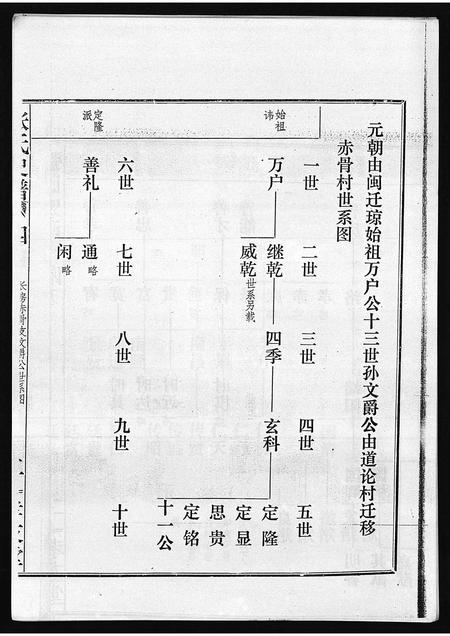 元朝由闽迁琼始祖万户公十三世孙文爵公由道论村迁移
赤骨村世系图
始祖讳
一世
二世
三世
四世
五世
万户
继乾
四季
玄科
威乾世系另载
定隆
定显
思贵
定铭
十一公
定隆派
六世
七世
八世
九世
十世
善礼
通略
闲略